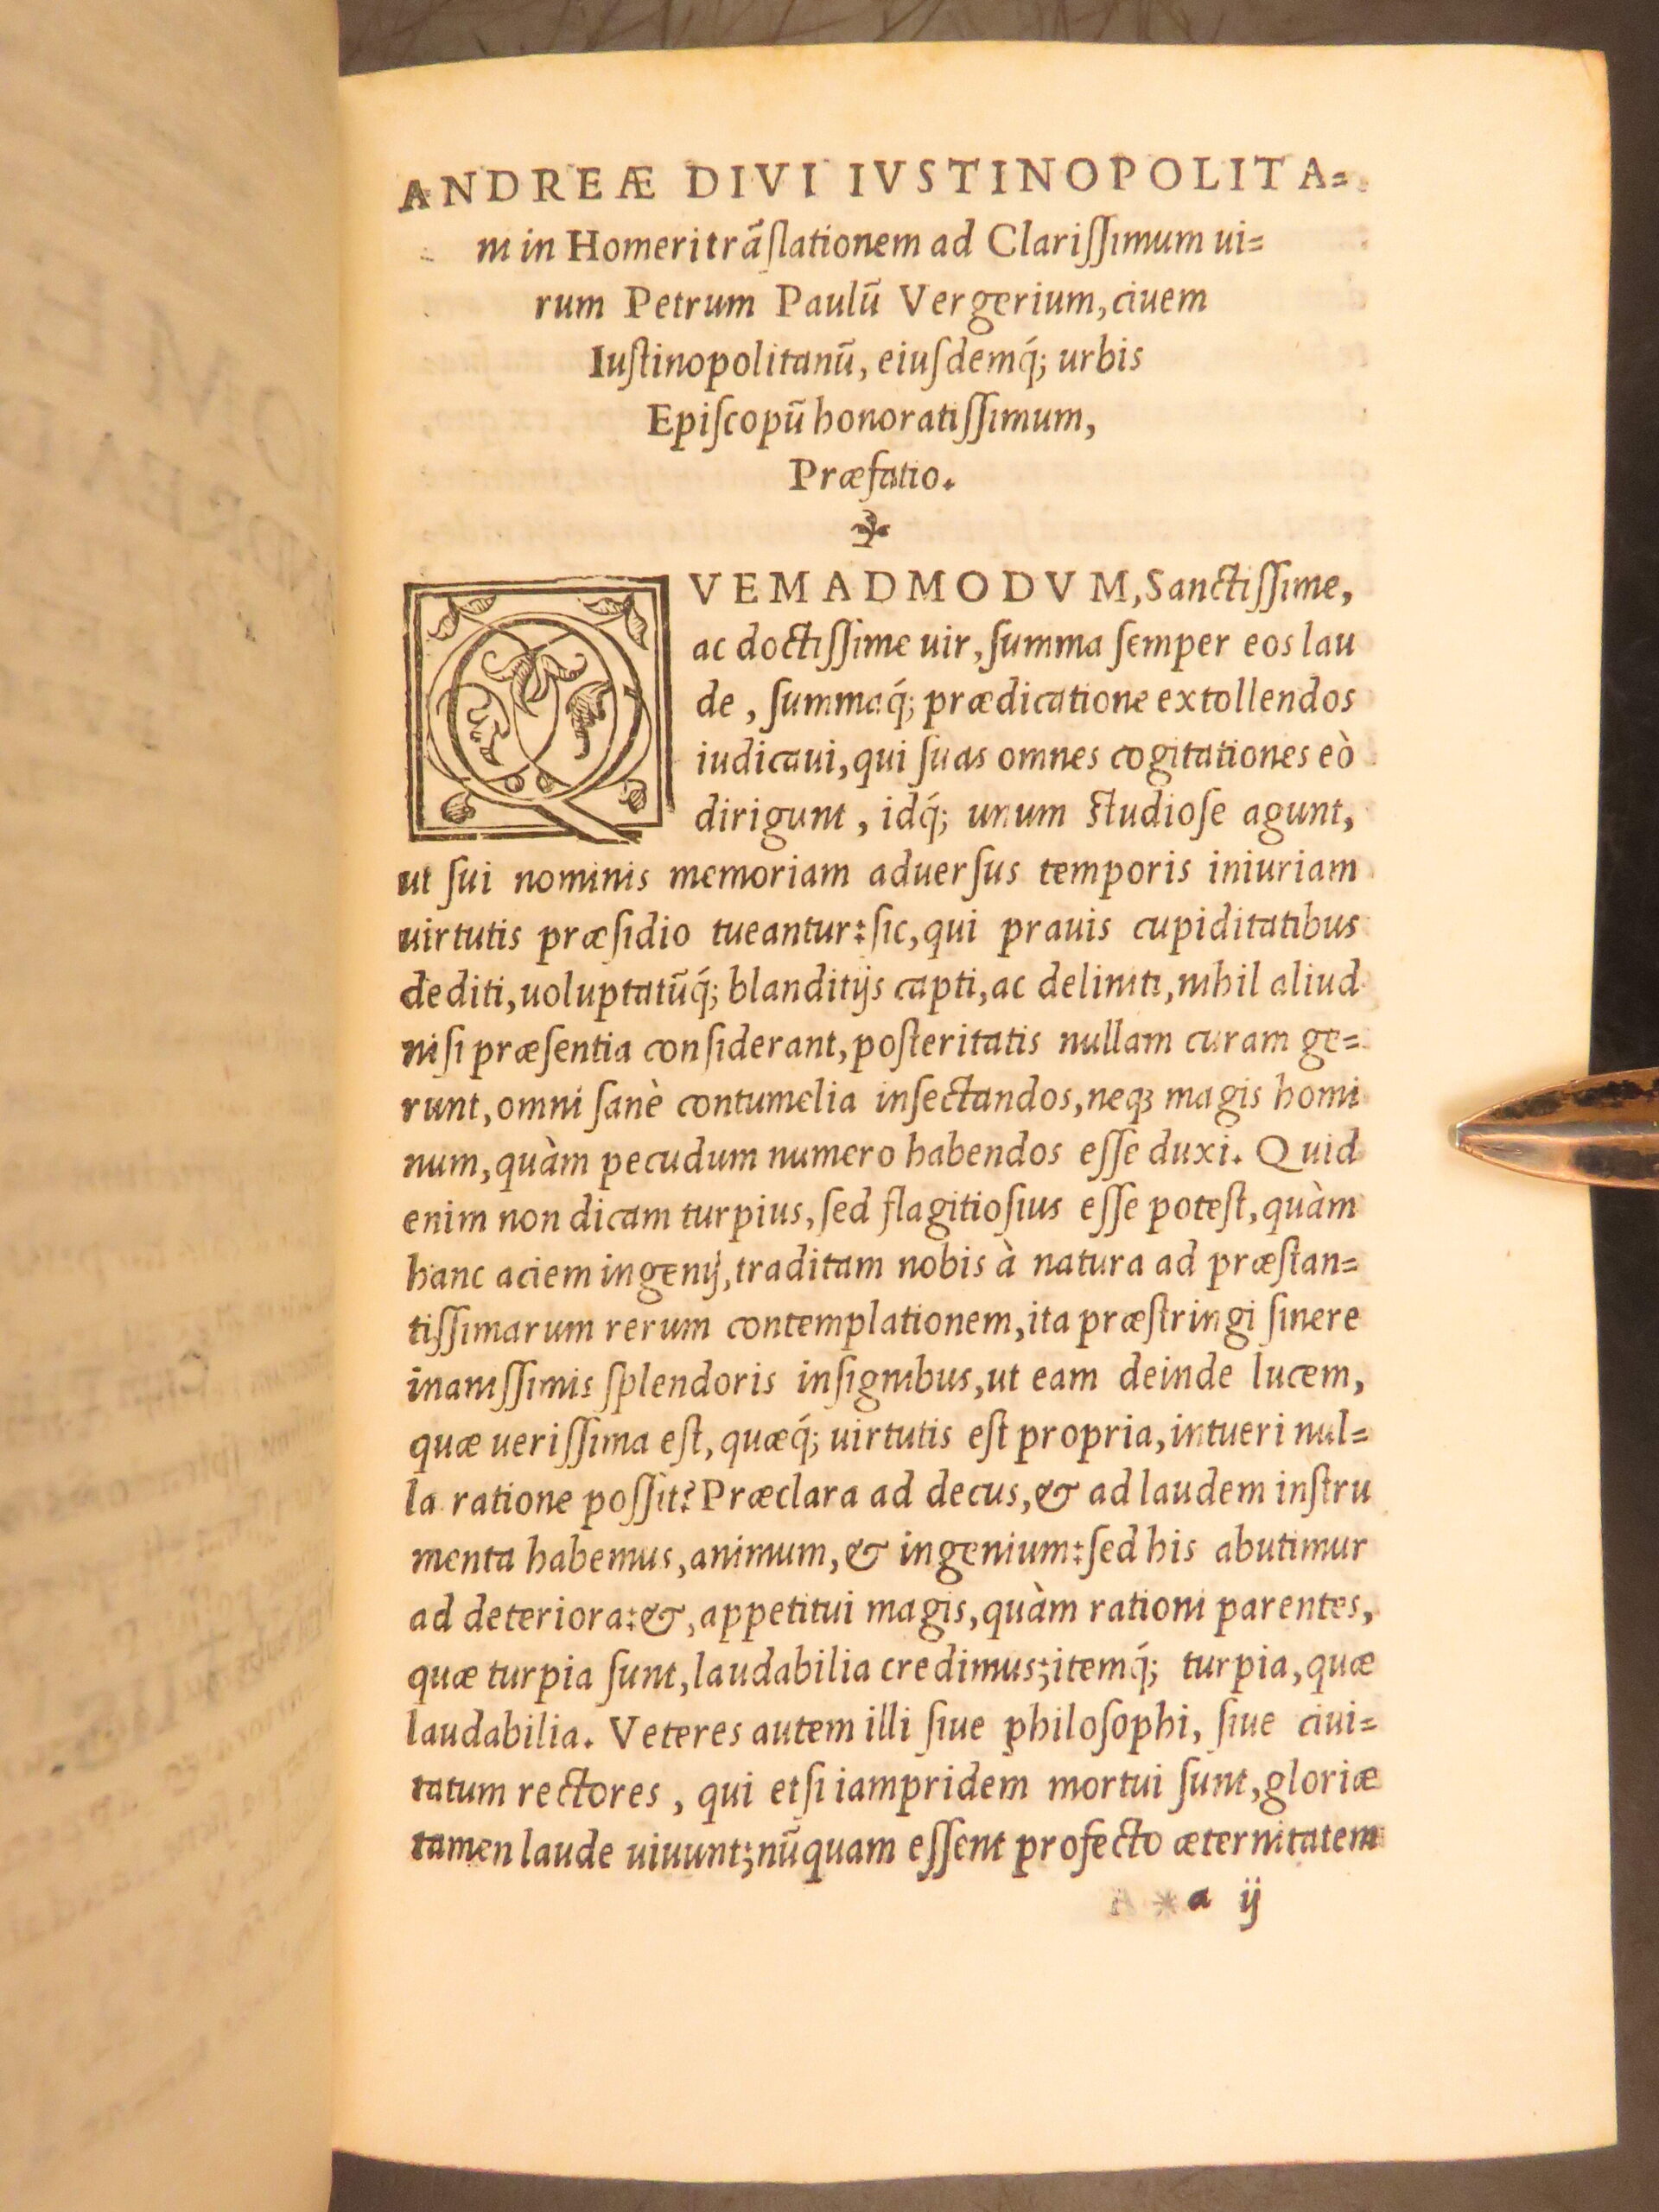 ANDREÆ DIVI IVSTINOPOLITA=
ni in Homeri trãſlationem ad Clariſſimum ui=
rum Petrum Paulũ Vergerium, ciuem
Iuſtinopolitanũ, eiuſdemq́; urbis
Epiſcopũ honoratiſſimum,
Præfatio.
QVEMADMODVM, Sanctiſſime,
ac doctiſſime uir, ſumma ſemper eos lau
de, ſummaq́; prædicatione extollendos
iudicaui, qui ſuas omnes cogitationes eò
dirigunt, idq́; unum ſtudioſe agunt,
ut ſui nominis memoriam aduerſus temporis iniuriam
uirtutis præſidio tueantur: ſic, qui prauis cupiditatibus
dediti, uoluptatũq́; blanditijs capti, ac deliniti, nihil aliud
niſi præſentia conſiderant, poſteritatis nullam curam ge=
runt, omni ſanè contumelia inſectandos, neqꝫ magis homi
num, quàm pecudum numero habendos eſſe duxi. Quid
enim non dicam turpius, ſed flagitioſius eſſe poteſt, quàm
hanc aciem ingenij, traditam nobis à natura ad præſtan=
tiſſimarum rerum contemplationem, ita præſtringi ſinere
inaniſſimis ſplendoris inſignibus, ut eam deinde lucem,
quæ ueriſſima eſt, quæq́; uirtutis eſt propria, intueri nul=
la ratione poſſit? Præclara ad decus, & ad laudem inſtru
menta habemus, animum, & ingenium: ſed his abutimur
ad deteriora: &, appetitui magis, quàm rationi parentes,
quæ turpia ſunt, laudabilia credimus; itemq́; turpia, quæ
laudabilia. Veteres autem illi ſiue philoſophi, ſiue ciui=
tatum rectores, qui etſi iampridem mortui ſunt, gloriæ
tamen laude uiuunt; nũquam eſſent profecto æternitatem
* a ij